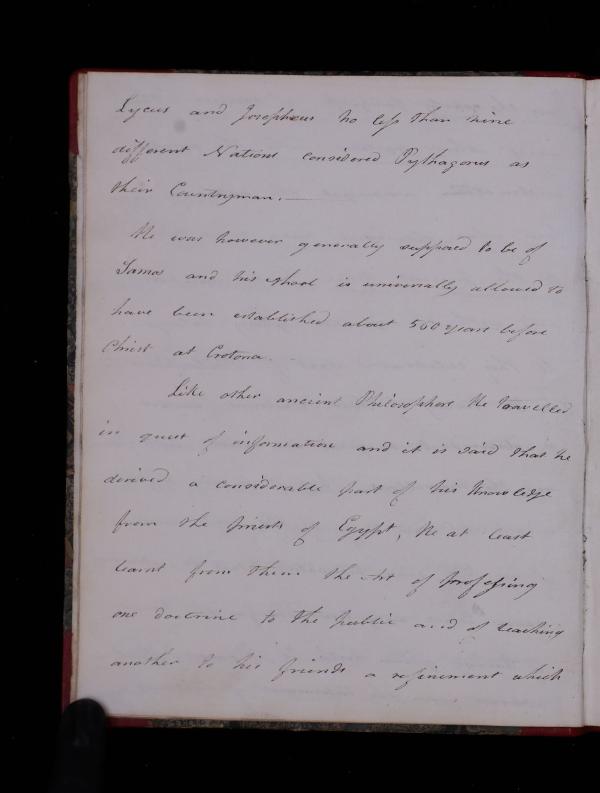 Lycus and Josepheus no less than nine
different Nations considered Pythagoras as
their Countryman.
He was however generally supposed to be of
Samos and his school is universally allowed to
have been established about 500 years before
Christ at Crotona.
Like other ancient Philosophers He travelled
in quest of information and it is said that he
derived a considerable part of his Knowledge
from the priests of Egypt, He at least
learnt from them the Art of professing
one doctrine to the public and of teaching
another to his friends a refinement which